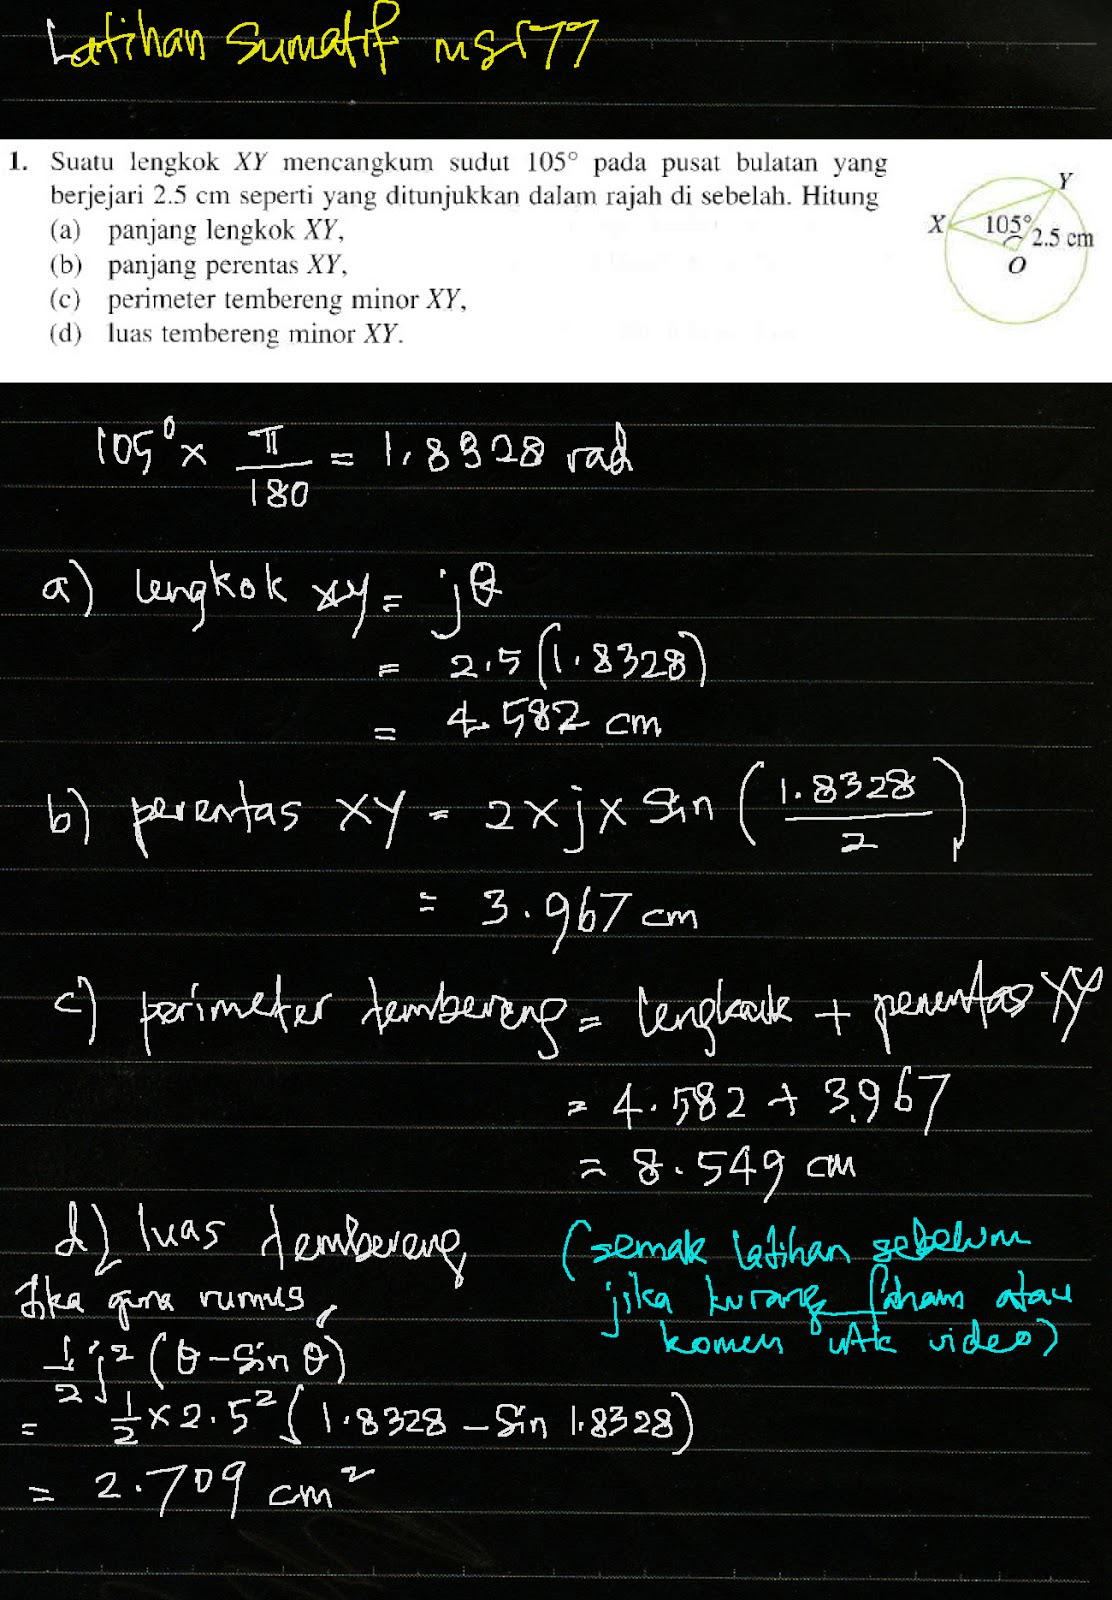 Latihan Sumatif ms 177
1. Suatu lengkok XY mencangkum sudut 105° pada pusat bulatan yang
berjejari 2.5 cm seperti yang ditunjukkan dalam rajah di sebelah. Hitung
(a) panjang lengkok XY,
(b) panjang perentas XY,
(c) perimeter tembereng minor XY,
(d) luas tembereng minor XY.
Y
X
105°
2.5 cm
O
105° × π/180 = 1.8328 rad
a) lengkok XY = jθ
= 2.5(1.8328)
= 4.582 cm
b) perentas XY = 2 × j × Sin (1.8328/2)
= 3.967 cm
c) perimeter tembereng = lengkok + perentas XY
= 4.582 + 3.967
= 8.549 cm
d) luas tembereng
Jika guna rumus,
1/2 j² (θ - Sin θ)
= 1/2 × 2.5² (1.8328 - Sin 1.8328)
= 2.709 cm²
(semak latihan sebelum
jika kurang faham atau
komen utk video)